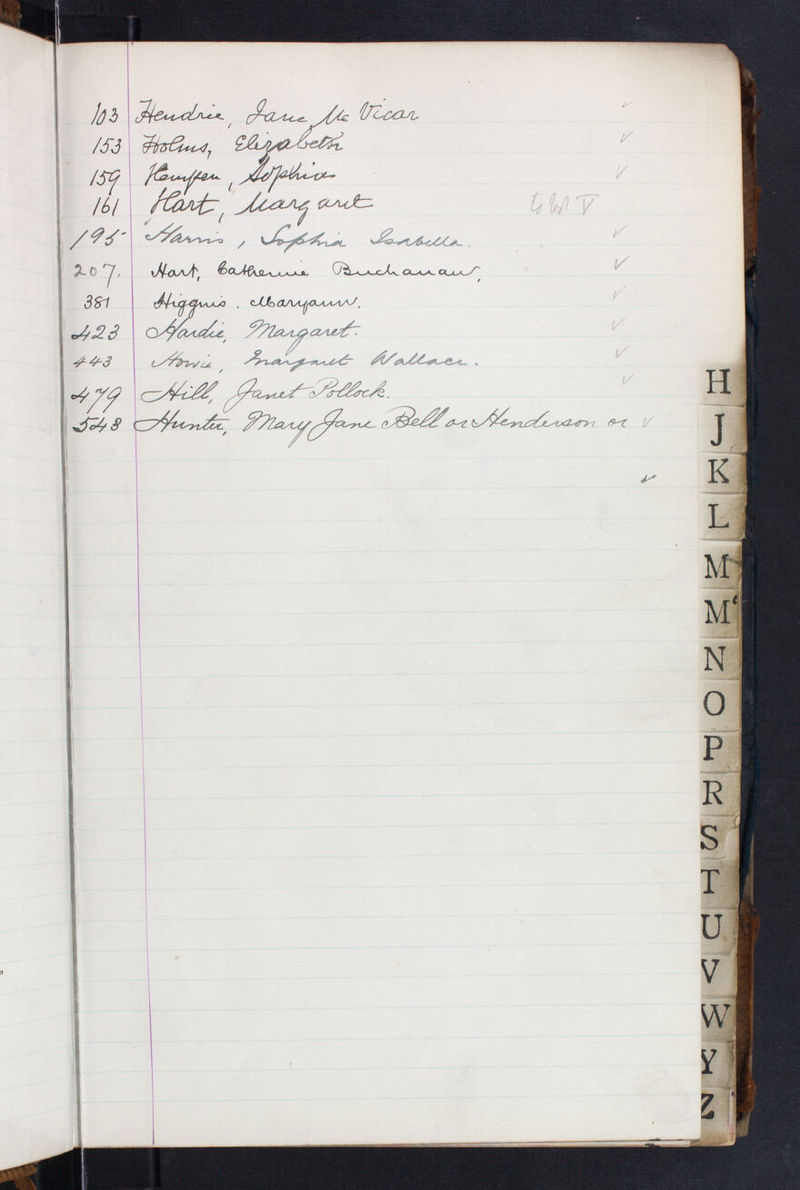 103 Hendrie, Jane Mc Vicar
153 Holms, Elizabeth
159 Sophia
161 Hart, Margaret to Vol V
195 Harris, Sophia Isabella.
207. Hart, Catherine Buchanan,
381 Higgins. Maryann.
423 Hardie, Margaret.
443 Howie, Margaret Wallace.
479 Hill, Janet Pollock.
548 Hunter, Mary Jane Bell or Henderson or
H
J
K
L
M
Mc
N
O
P
R
S
T
U
V
W
Y
Z